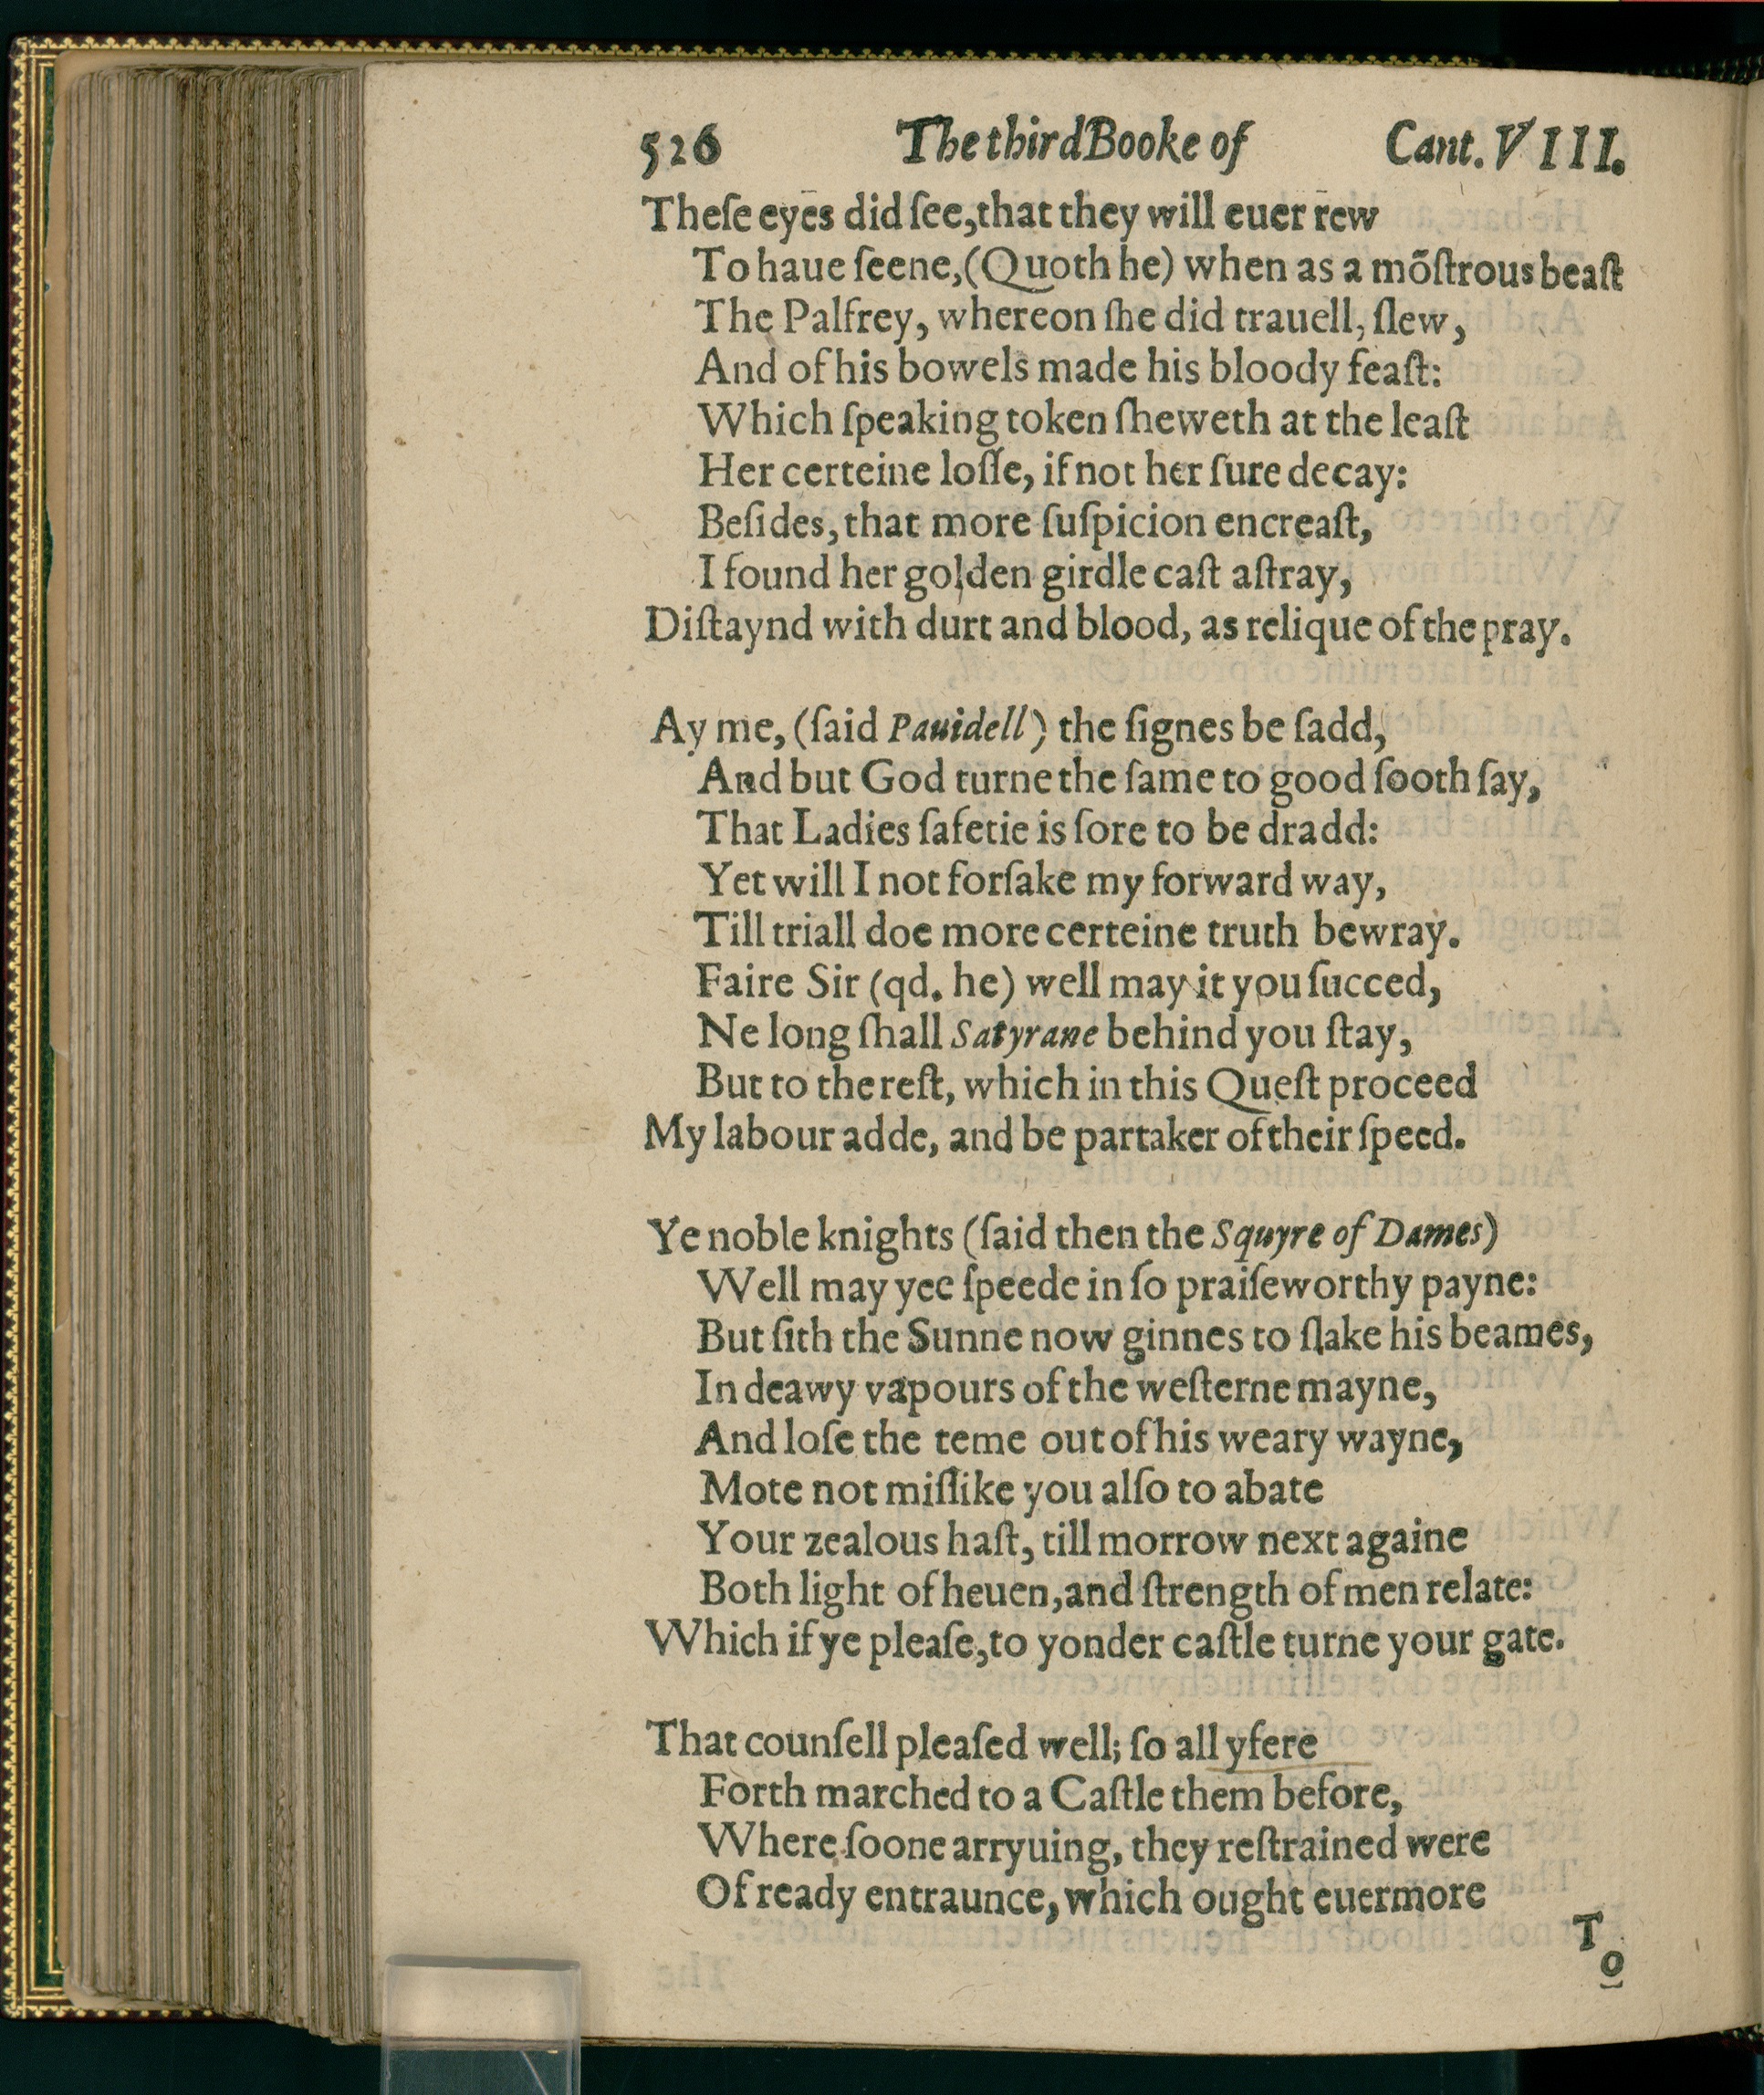 526 The third Booke of Cant. VIII.
Theſe eyes did ſee, that they will euer rew
To haue ſeene, (Quoth he) when as a mõſtrous beaſt
The Palfrey, whereon ſhe did trauell, ſlew,
And of his bowels made his bloody feaſt:
Which ſpeaking token ſheweth at the leaſt
Her certeine loſſe, if not her ſure decay:
Beſides, that more ſuſpicion encreaſt,
I found her golden girdle caſt aſtray,
Diſtaynd with durt and blood, as relique of the pray.
Ay me, (ſaid Pauidell) the ſignes be ſadd,
And but God turne the ſame to good ſooth ſay,
That Ladies ſafetie is ſore to be dradd:
Yet will I not forſake my forward way,
Till triall doe more certeine truth bewray.
Faire Sir (qd. he) well may it you ſucced,
Ne long ſhall Satyrane behind you ſtay,
But to the reſt, which in this Queſt proceed
My labour adde, and be partaker of their ſpeed.
Ye noble knights (ſaid then the Squyre of Dames)
Well may yee ſpeede in ſo praiſeworthy payne:
But ſith the Sunne now ginnes to ſlake his beames,
In deawy vapours of the weſterne mayne,
And loſe the teme out of his weary wayne,
Mote not miſlike you alſo to abate
Your zealous haſt, till morrow next againe
Both light of heuen, and ſtrength of men relate:
Which if ye pleaſe, to yonder caſtle turne your gate.
That counſell pleaſed well; ſo all yfere
Forth marched to a Caſtle them before,
Where ſoone arryuing, they reſtrained were
Of ready entraunce, which ought euermore
To